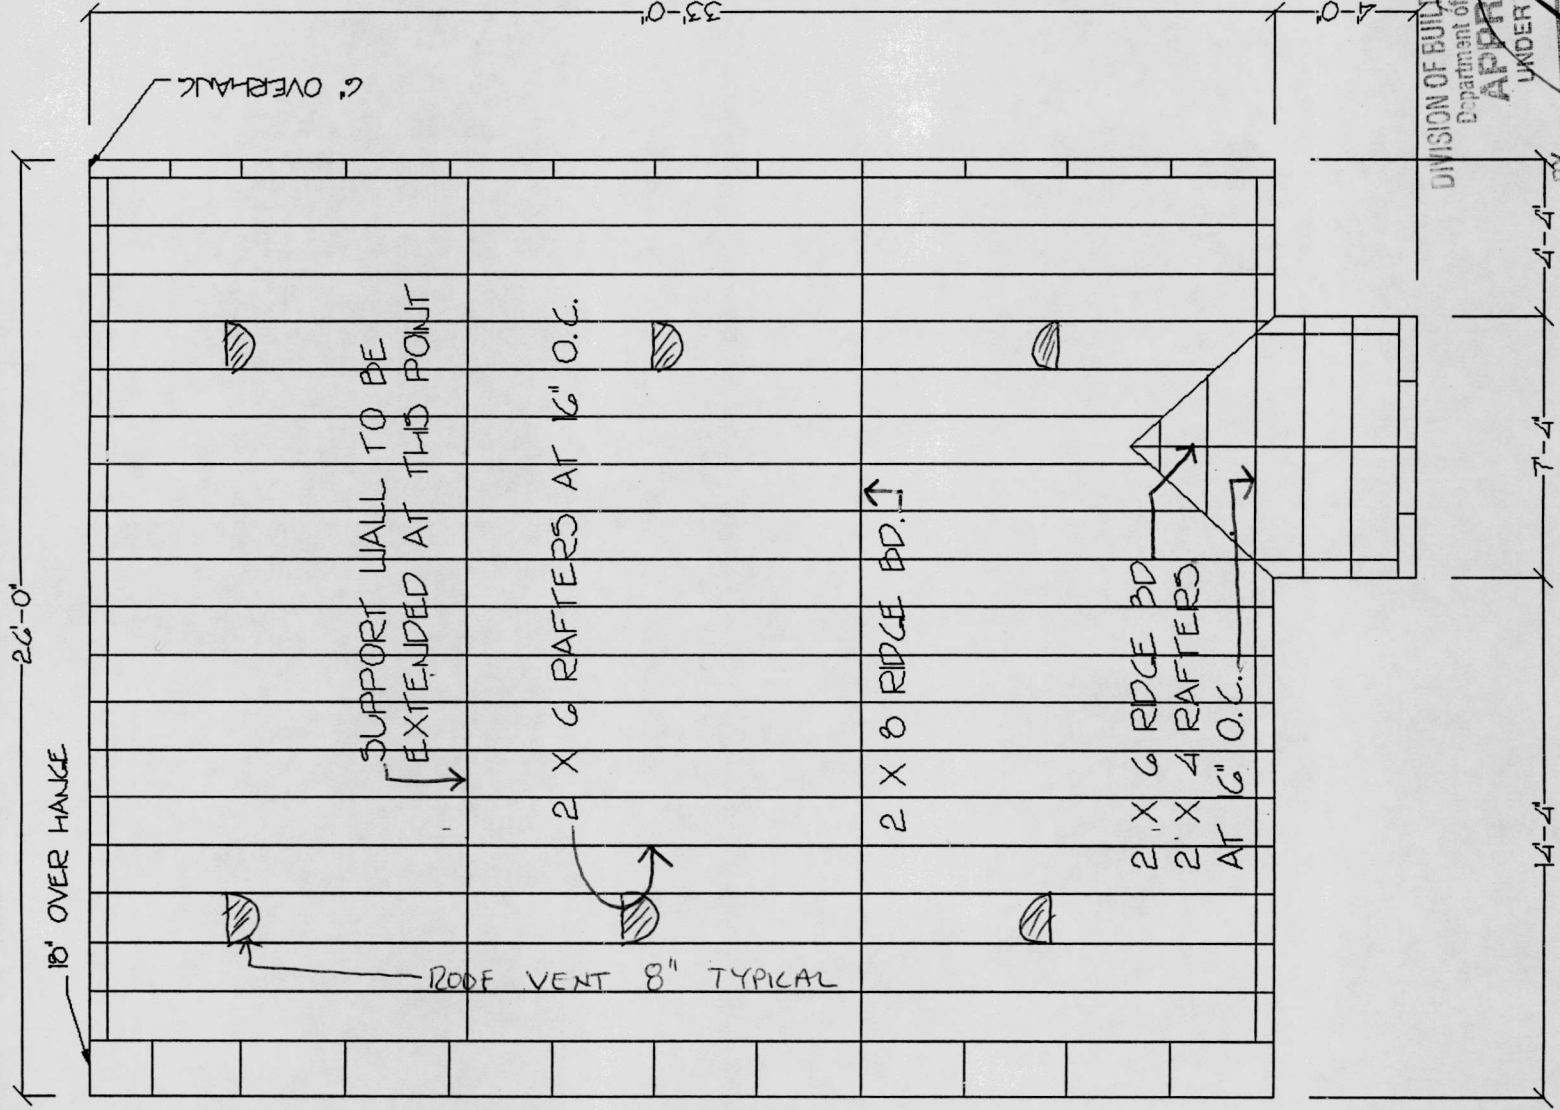 33'-0"
4'-0"
6" OVERHANG
26'-0"
18" OVER HANGE
SUPPORT WALL TO BE
EXTENDED AT THIS POINT
2 X 6 RAFTERS AT 16" O.C.
2 X 8 RIDGE BD.
2 X 6 RIDGE BD
2 X 4 RAFTERS
AT 16" O.C.
ROOF VENT 8" TYPICAL
14'-4"
7'-4"
4'-4"
DIVISION OF BUIL
Department of
APPR
UNDER